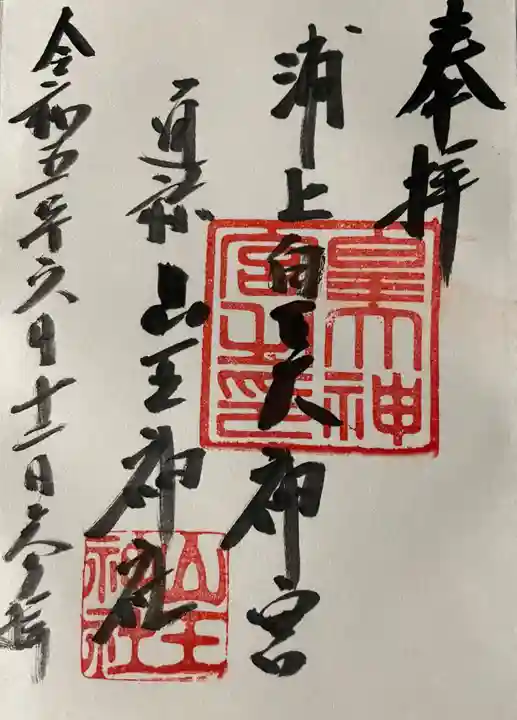 奉拝
浦上皇大神宮
通称 山王神社
令和五年六月十二日
皇大神
宮之印
山王
神社